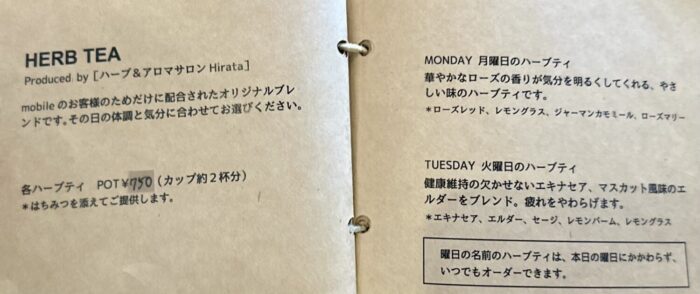 HERB TEA
Produced by [ハーブ＆アロマサロン Hirata]
mobile のお客様のためだけに配合されたオリジナルブレ
ンドです。その日の体調と気分に合わせてお選びください。
各ハーブティ　POT¥750（カップ約２杯分）
＊はちみつを添えてご提供します。
MONDAY 月曜日のハーブティ
華やかなローズの香りが気分を明るくしてくれる、やさ
しい味のハーブティです。
＊ローズレッド、レモングラス、ジャーマンカモミール、ローズマリー
TUESDAY 火曜日のハーブティ
健康維持の欠かせないエキナセア、マスカット風味のエ
ルダーをブレンド。疲れをやわらげます。
＊エキナセア、エルダー、セージ、レモンバーム、レモングラス
曜日の名前のハーブティは、本日の曜日にかかわらず、
いつでもオーダーできます。